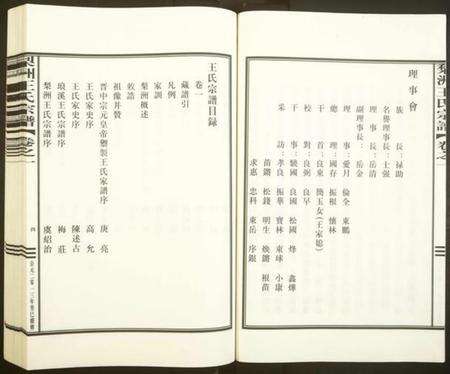 梨洲王氏宗譜
卷之一
理事會
族 長：祿助
名譽理事長：士强
理 事 長：岳清
副理事長：岳金
理 事：愛月 倫全 東鵬
總 理：國存 振根 懷林
干 首：良東 簡玉女(王家媳)
校 對：良弼 良早
干 事：驍國 良國 松國 烽 鑫燁
采 訪：孝良 振華 寶林 東球 小康
苗鏘 松錢 明生 煥鏘 根苗
求惠 忠科 東岳 序銀
王氏宗譜目録
卷一
藏譜引
凡例
家訓
梨洲概述
敕誥
祖像并贊
晋中宗元皇帝璽製王氏家譜序 庚亮
王氏家史序 高允
王氏家史序 陳述古
琅溪王氏宗譜序 梅莊
梨洲王氏宗譜序 虞紹治
梨洲王氏宗譜
卷之一
四